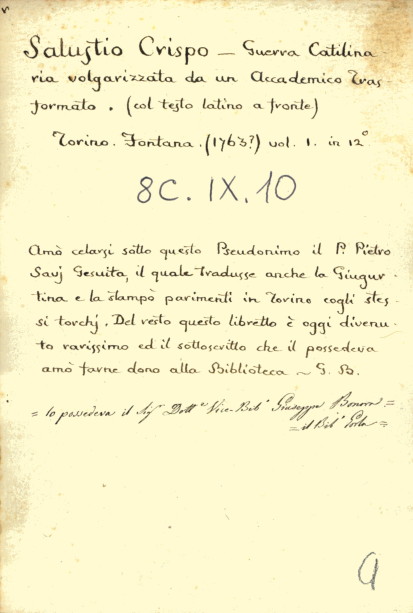 Salustio Crispo — Guerra Catilina
ria volgarizzata da un Accademico Tras
formato. (col testo latino a fronte)
Torino. Fontana. (1763?) vol. 1. in 12°
8C. IX. 10
Amò celarsi sotto questo Pseudonimo il P. Pietro
Savj Gesuita, il quale tradusse anche la Giugur-
tina e la stampò parimenti in Torino cogli stes-
si torchj. Del resto questo libretto è oggi divenu-
to rarissimo ed il sottoscritto che il possedeva
amò farne dono alla Biblioteca ~ G. B.
= lo possedeva il Sigr. Dottr. Vice-Bibo. Giuseppe Bonora =
= il Bibo.